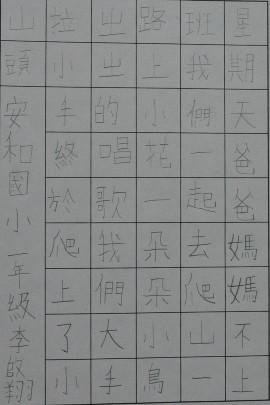 星期天爸爸媽媽不上
班我們一起去爬山一
路上小花一朵朵小鳥
出出的唱歌我們大手
拉小手終於爬上了小
山頭
安和國小一年級李啟翔